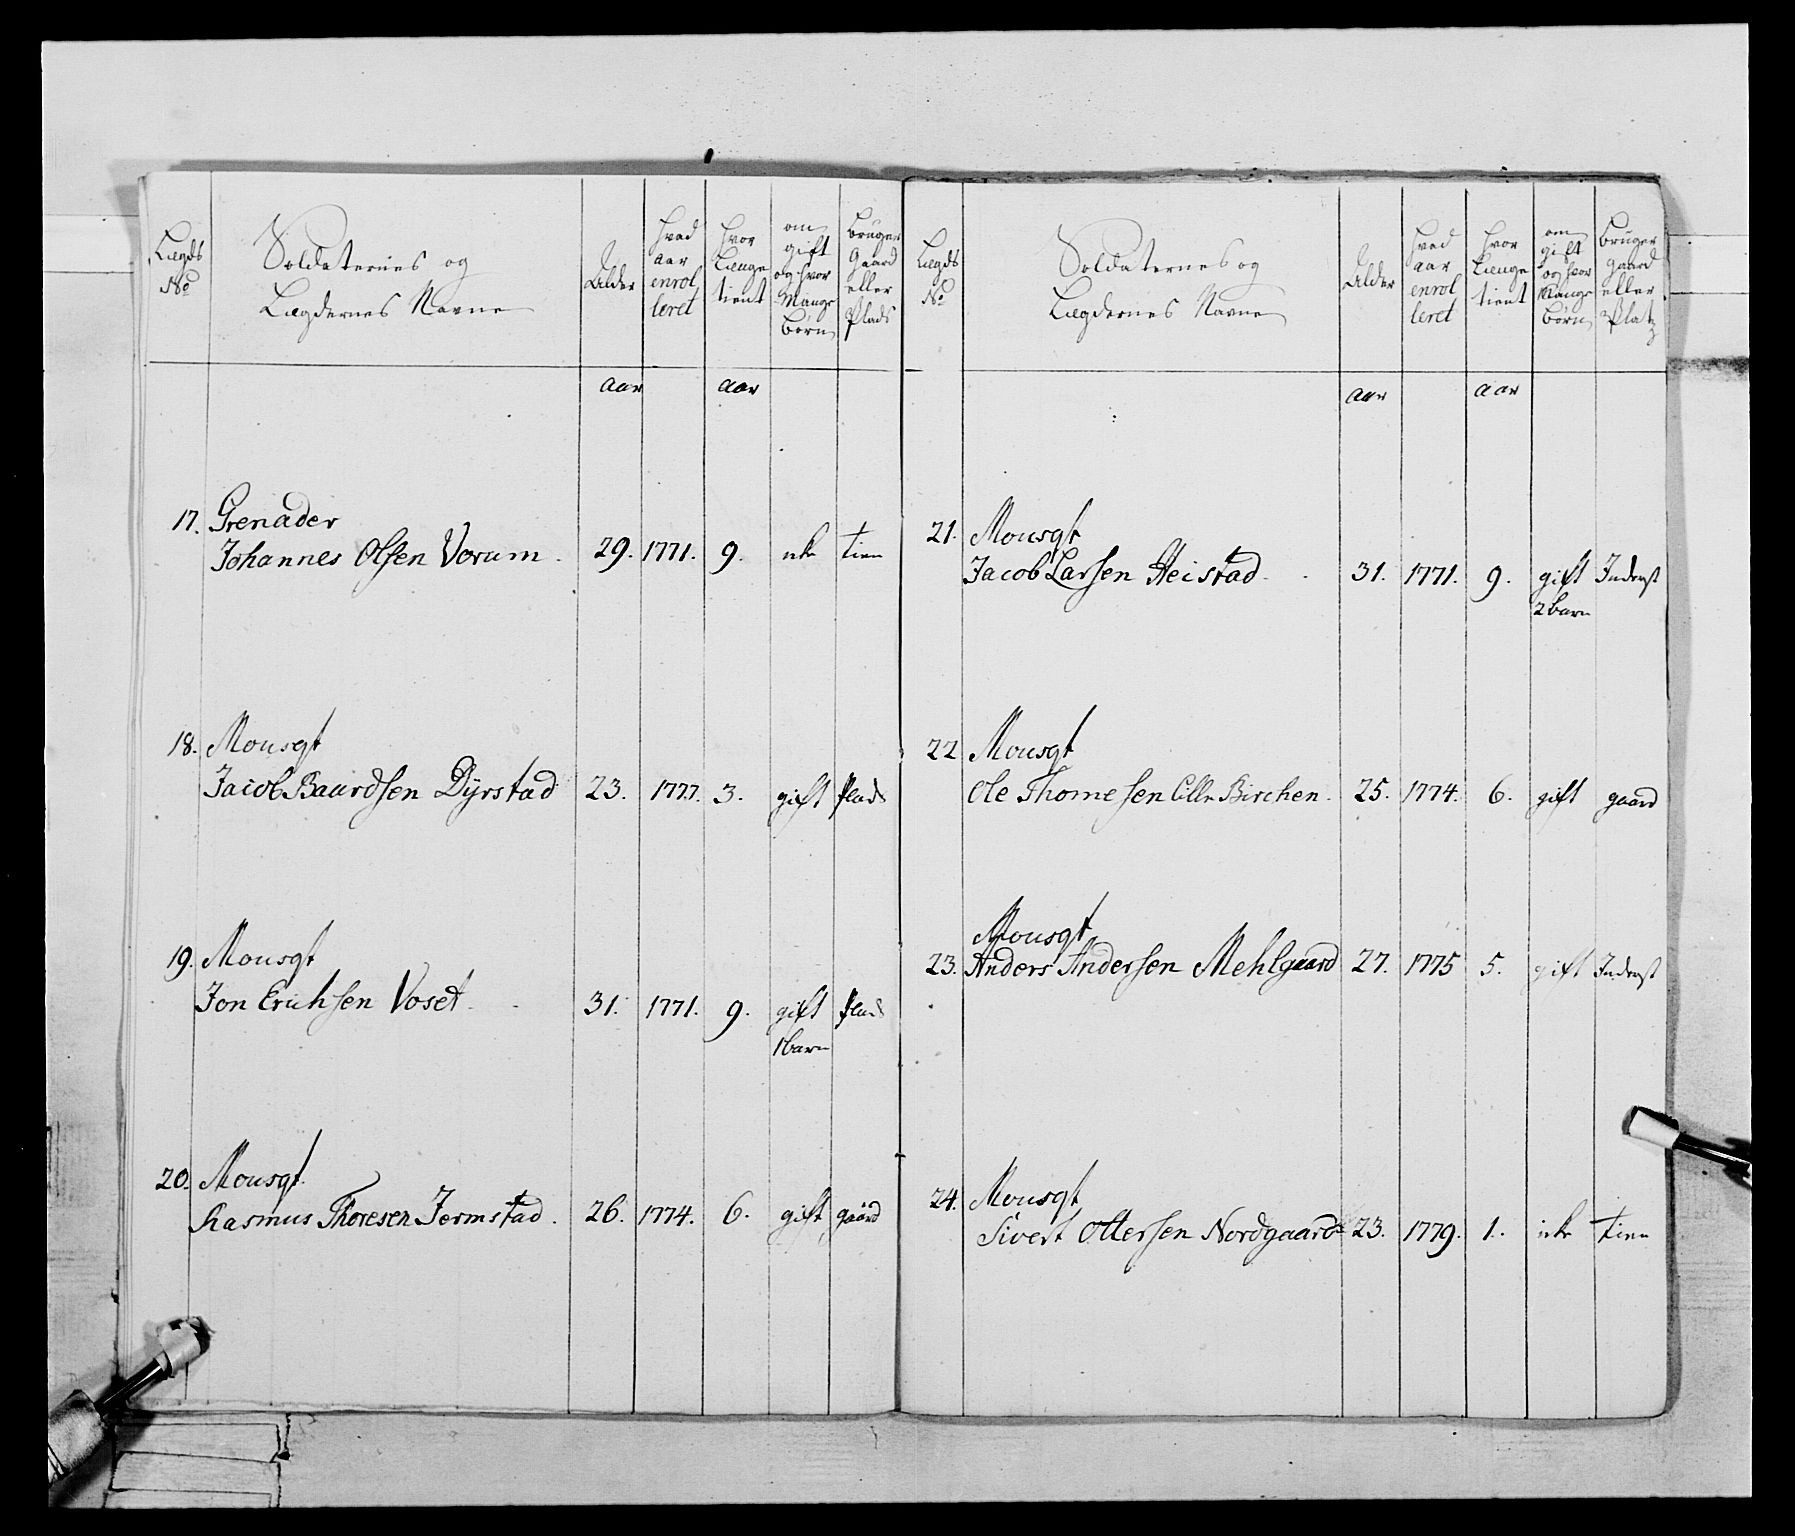 Lægds No
Soldaternes og Lægdernes Navne
Alder
hvad aar enrolleret
hvor Længe tient
om gift og hvor Mange Børn
Bruger Gaard eller Plads
aar aar
17. Grenader
Johannes Olsen Vorum. 29. 1771. 9. icke tien
18. Mousqt
Jacob Baardsen Dÿrstad 23. 1777. 3. gift plads
19. Mousqt
Jon Erichsen Voset 31. 1771. 9. gift plads
1 barn
20. Mousqt
Rasmus Thoresen Jermstad. 26. 1774. 6. gift gaard
Lægds No
Soldaternes og Lægdernes Navne
Alder
hvad aar enrolleret
hvor Længe tient
om gift og hvor Mange Børn
Bruger gaard eller Platz
aar aar
21. Mousqt
Jacob Larsen Heistad 31. 1771. 9. gift Inderst
2 barn
22 Mousqt
Ole Thomesen Lille Birchen. 25. 1774. 6. gift gaard
Mousqt
23. Anders Andersen Mehlgaard 27. 1775 5. gift Inderst
24. Mousqt
Sivert Ottersen Nordgaard 23. 1779. 1. icke tien